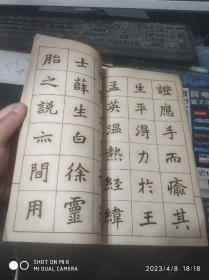 證應手而瘉其
生平淂力於王
孟英溫熱経緯
士薛生白徐靈
胎之說亦間用
SHOT ON MI 6
MI DUAL CAMERA
2023/4/8 18:17:15